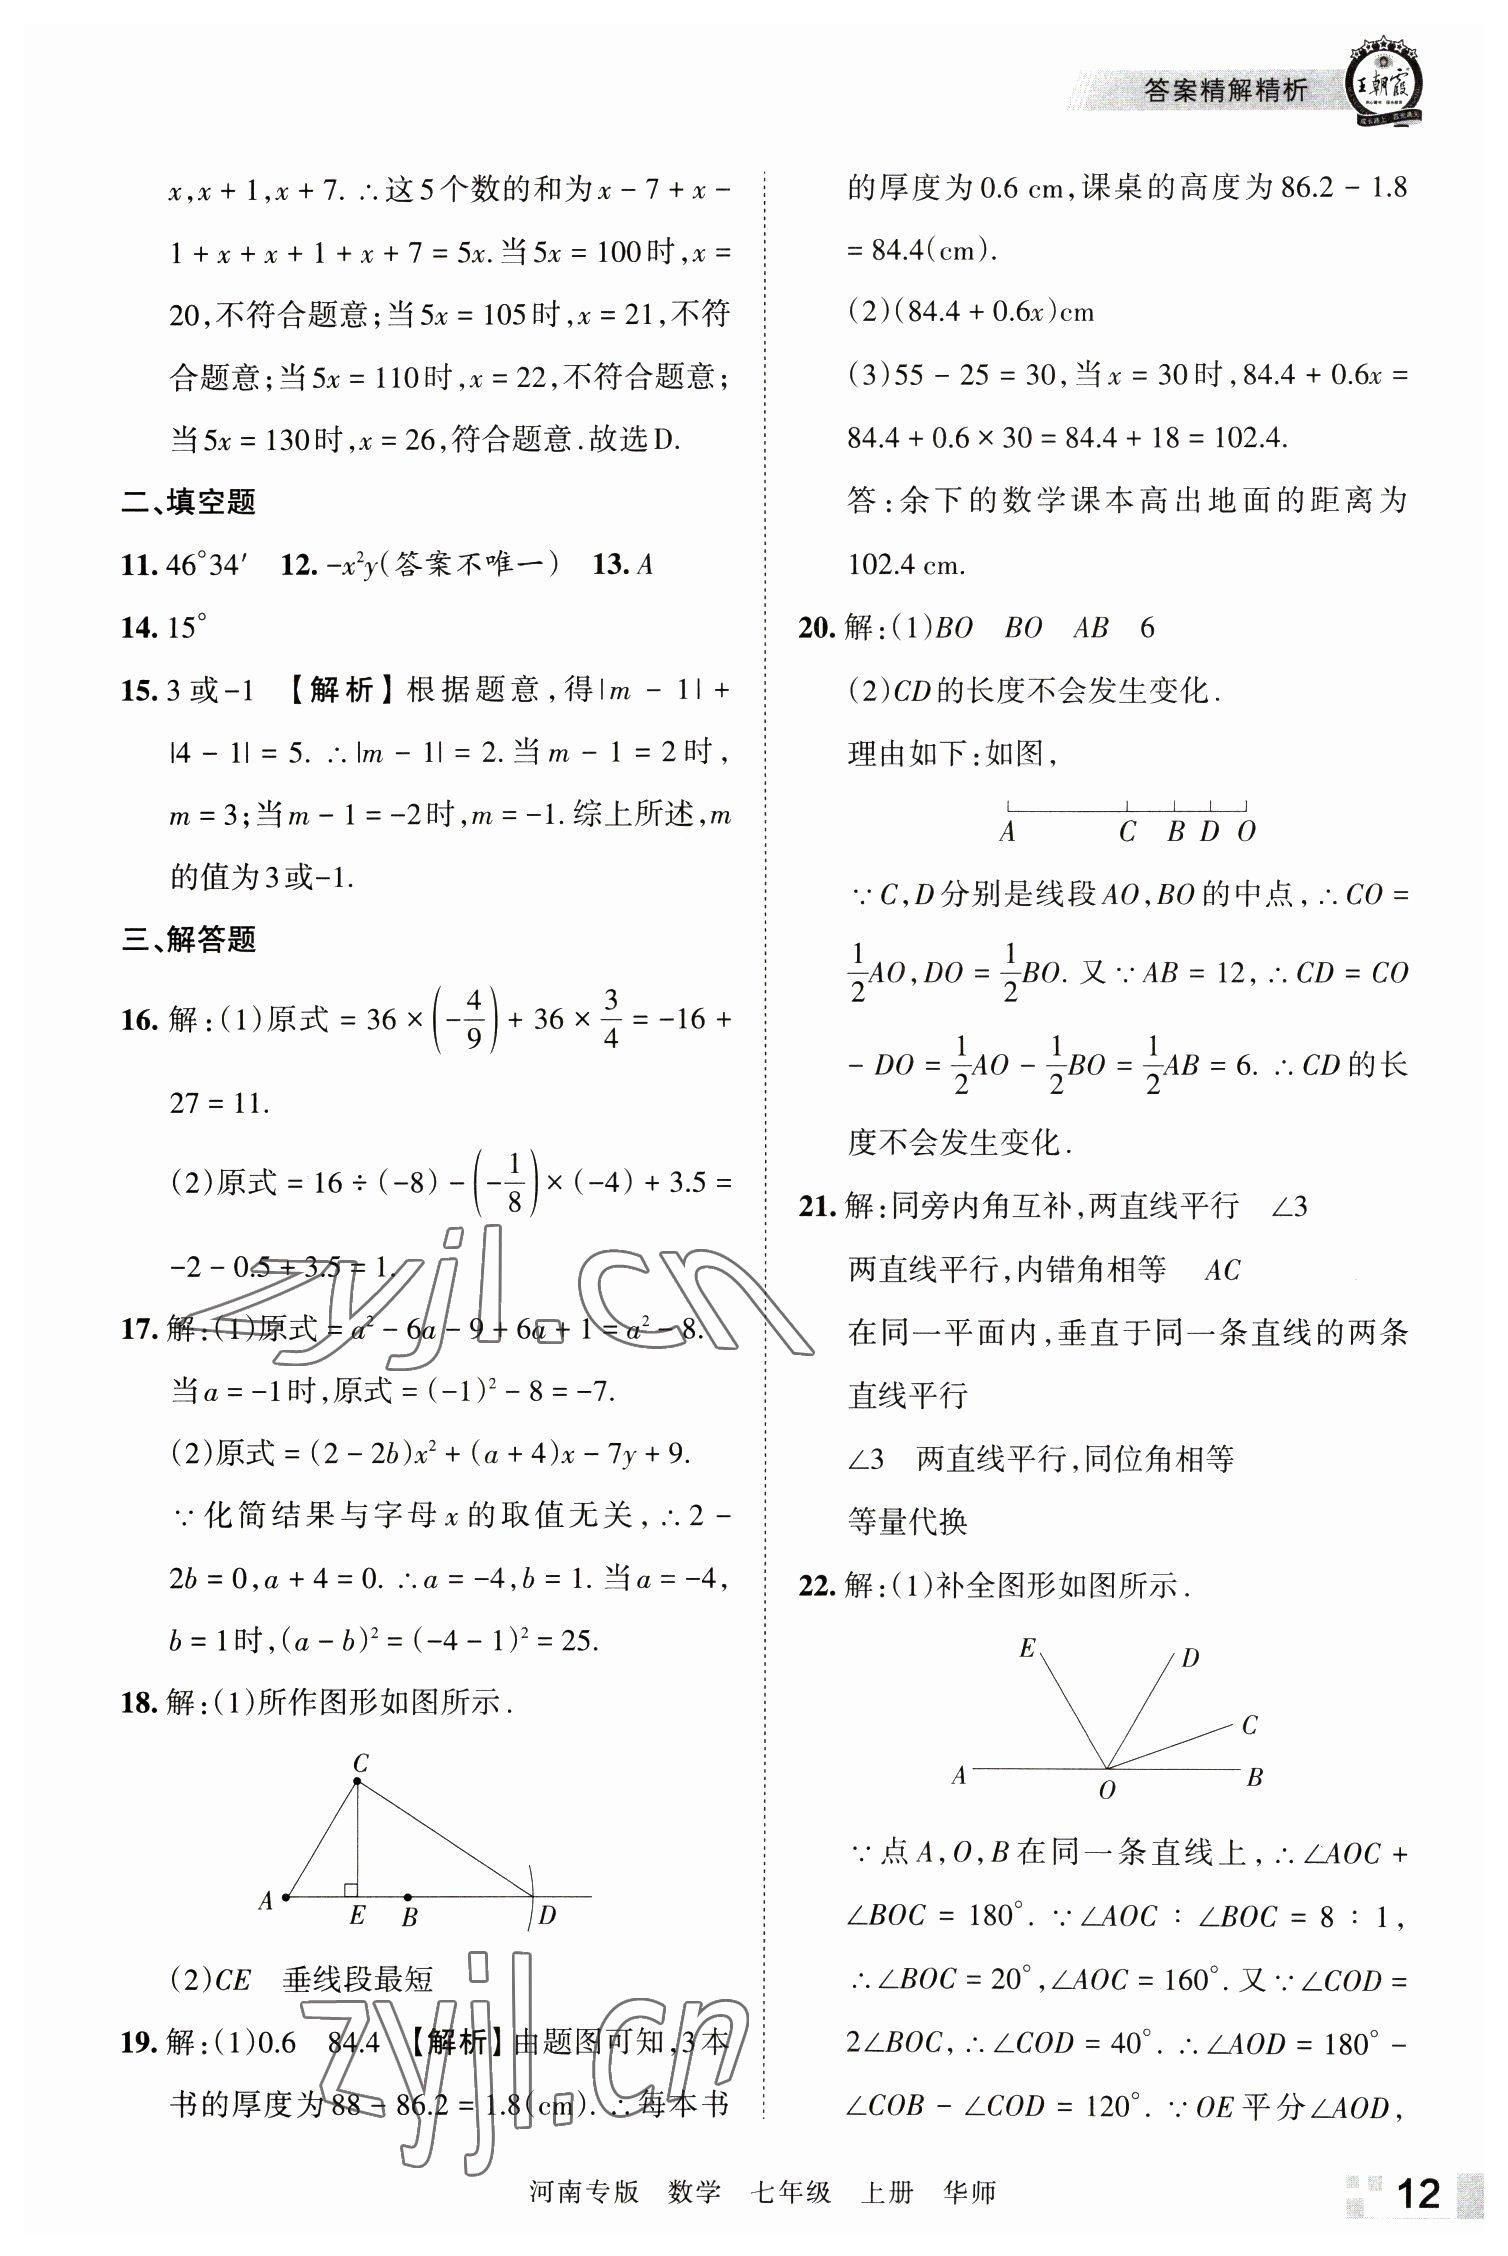 答案精解精析
王朝霞
x,x + 1,x + 7. ∴这5个数的和为x − 7 + x −
1 + x + x + 1 + x + 7 = 5x.当5x = 100时,x =
20,不符合题意;当5x = 105时,x = 21,不符
合题意;当5x = 110时,x = 22,不符合题意;
当5x = 130时,x = 26,符合题意.故选D.
二、填空题
11. 46°34′　12. −x²y(答案不唯一)　13. A
14. 15°
15. 3或−1　【解析】根据题意,得|m − 1| +
|4 − 1| = 5. ∴|m − 1| = 2.当m − 1 = 2时,
m = 3;当m − 1 = −2时,m = −1.综上所述,m
的值为3或−1.
三、解答题
16. 解:(1)原式 = 36 × (−4/9) + 36 × 3/4 = −16 +
27 = 11.
(2)原式 = 16 ÷ (−8) − (−1/8) × (−4) + 3.5 =
−2 − 0.5 + 3.5 = 1.
17. 解:(1)原式 = a² − 6a − 9 + 6a + 1 = a² − 8.
当a = −1时,原式 = (−1)² − 8 = −7.
(2)原式 = (2 − 2b)x² + (a + 4)x − 7y + 9.
∵化简结果与字母x的取值无关, ∴2 −
2b = 0,a + 4 = 0. ∴a = −4,b = 1. 当a = −4,
b = 1时,(a − b)² = (−4 − 1)² = 25.
18. 解:(1)所作图形如图所示.
C
A E B D
(2)CE　垂线段最短
19. 解:(1)0.6　84.4　【解析】由题图可知,3本
书的厚度为88 − 86.2 = 1.8(cm). ∴每本书
的厚度为0.6 cm,课桌的高度为86.2 − 1.8
= 84.4(cm).
(2)(84.4 + 0.6x)cm
(3)55 − 25 = 30,当x = 30时,84.4 + 0.6x =
84.4 + 0.6 × 30 = 84.4 + 18 = 102.4.
答:余下的数学课本高出地面的距离为
102.4 cm.
20. 解:(1)BO　BO　AB　6
(2)CD的长度不会发生变化.
理由如下:如图,
A C B D O
∵C,D分别是线段AO,BO的中点, ∴CO =
1/2AO,DO = 1/2BO. 又∵AB = 12, ∴CD = CO
− DO = 1/2AO − 1/2BO = 1/2AB = 6. ∴CD的长
度不会发生变化.
21. 解:同旁内角互补,两直线平行　∠3
两直线平行,内错角相等　AC
在同一平面内,垂直于同一条直线的两条
直线平行
∠3　两直线平行,同位角相等
等量代换
22. 解:(1)补全图形如图所示.
E D
C
A O B
∵点A,O,B在同一条直线上, ∴∠AOC +
∠BOC = 180°. ∵∠AOC : ∠BOC = 8 : 1,
∴∠BOC = 20°,∠AOC = 160°. 又∵∠COD =
2∠BOC, ∴∠COD = 40°. ∴∠AOD = 180° −
∠COB − ∠COD = 120°. ∵OE平分∠AOD,
zyjl.cn
zyjl.cn
河南专版　数学　七年级　上册　华师
12